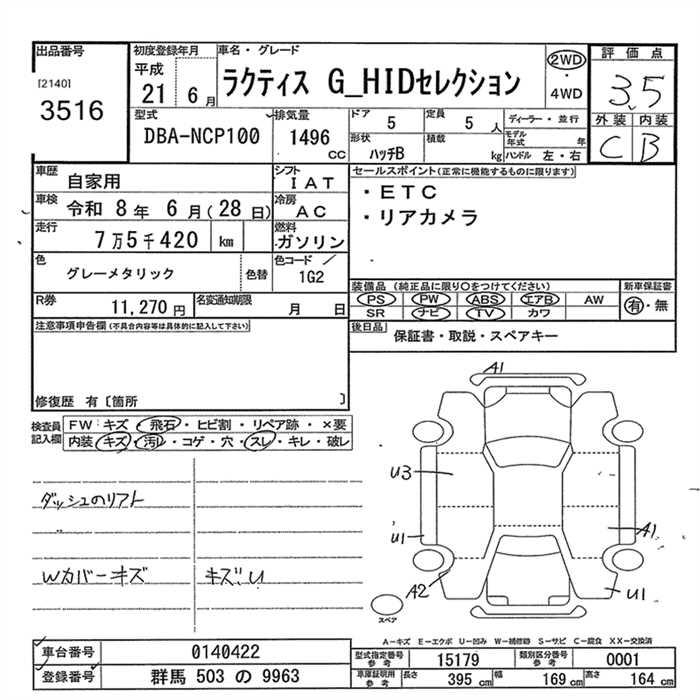 出品番号
[2140]
3516
初度登録年月
平成
21 6 月
車名・グレード
ラクティス G_HIDセレクション
2WD
・
4WD
評価点
3.5
外装 内装
C B
型式
DBA-NCP100
排気量
1496 CC
ドア 5
定員 5 人
形状 ハッチB
積載 kg
ディーラー・並行
モデル年式 年
ハンドル 左・右
車歴 自家用
シフト IAT
車検 令和 8 年 6 月(28 日)
冷房 AC
走行 7万5千420 km
燃料 ガソリン
色 グレーメタリック 色替
色コード 1G2
R券 11,270 円
名変通知期限 月 日
セールスポイント(正常に機能するものに限ります)
・ETC
・リアカメラ
装備品 (純正品に限り○をつけてください)
PS PW ABS エアB AW
SR ナビ TV カワ
新車保証書
有・無
後日品 保証書・取説・スペアキー
注意事項申告欄(不具合内容等は具体的に記入して下さい)
修復歴 有〔箇所 〕
検査員記入欄
FW:キズ・飛石・ヒビ割・リペア跡・×要
内装・キズ・汚れ・コゲ・穴・スレ・キレ・破レ
ダッシュのリフト
〃
Wカバーキズ
キズU
A1
U3
U1
A2
A1
U1
スペア
A-キズ E-エクボ U-凹み W-補修跡 S-サビ C-腐食 XX-交換済
車台番号 0140422
登録番号 群馬 503 の 9963
型式指定番号 参考 15179
類別区分番号 参考 0001
車庫証明用 参考 長さ 395 cm 幅 169 cm 高さ 164 cm